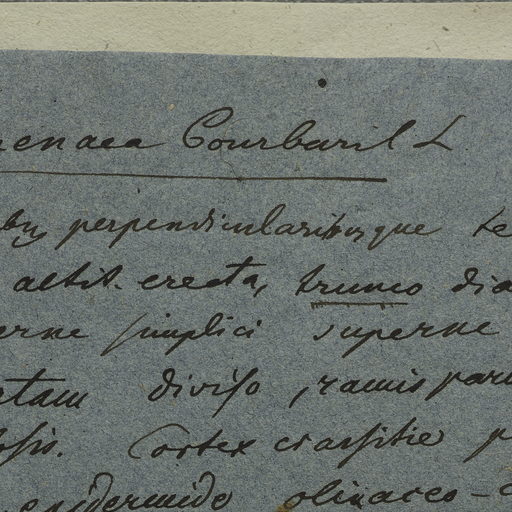 enaea Courbaril L
bus perpendicularibusque te
altit. erecta, trunco dia
erne simplici superne
etam diviso, ramis parum
losis. Cortex crassitie p
epidermide olivaceo-